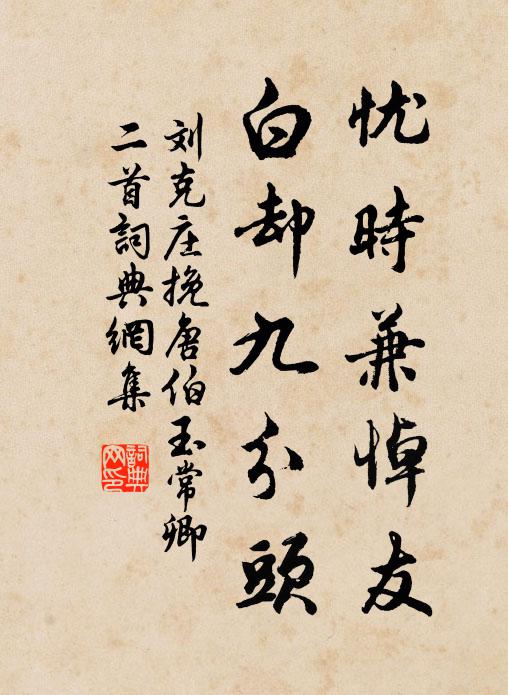 忧時兼悼友
白却九分頭
刘克庄挽唐伯玉常卿
二首詞典網集
詞典网印